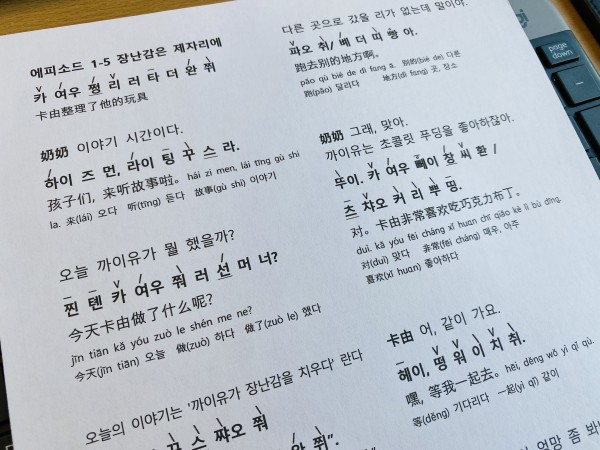 에피소드 1-5 장난감은 제자리에
카 여우 쩡 리 러 타 더 완 쥐
卡由整理了他的玩具
奶奶 이야기 시간이다.
하이 즈 먼, 라이 팅 꾸 스 라.
孩子们, 来听故事啦。hái zi men, lái tīng gù shi
la. 来(lái) 오다 听(tīng) 듣다 故事(gù shi) 이야기
오늘 까이유가 뭘 했을까?
찐 톈 카 여우 쭤 러 선 머 너?
今天卡由做了什么呢?
jīn tiān kǎ yóu zuò le shén me ne?
今天(jīn tiān) 오늘 做(zuò) 하다 做了(zuò le) 했다
오늘의 이야기는 '까이유가 장난감을 치우다' 란다
스 쨔오 쭤
완 쥐".
다른 곳으로 갔을 리가 없는데 말이야.
파오 취/ 뼤 더 띠 f팡 아.
跑去别的地方啊。
pǎo qù bié de dì fang ā. 别的(bié de) 다른
跑(pǎo) 달리다 地方(dì fang) 곳, 장소
奶奶 그래, 맞아.
까이유는 초콜릿 푸딩을 좋아하잖아.
뚜이. 카 여우 f페이 창 씨 환 /
츠 챠오 커 리 뿌 띵.
对。卡由非常喜欢吃巧克力布丁。
duì. kǎ yóu fēi cháng xǐ huan chī qiǎo kè lì bù dīng.
对(duì) 맞다 非常(fēi cháng) 매우, 아주
喜欢(xǐ huan) 좋아하다
卡由 어, 같이 가요.
헤이, 떵 워 이 치 취.
嘿, 等我一起去。hēi, děng wǒ yì qǐ qù.
等(děng) 기다리다 一起(yì qǐ) 같이
엄마 좀 봐
page
down